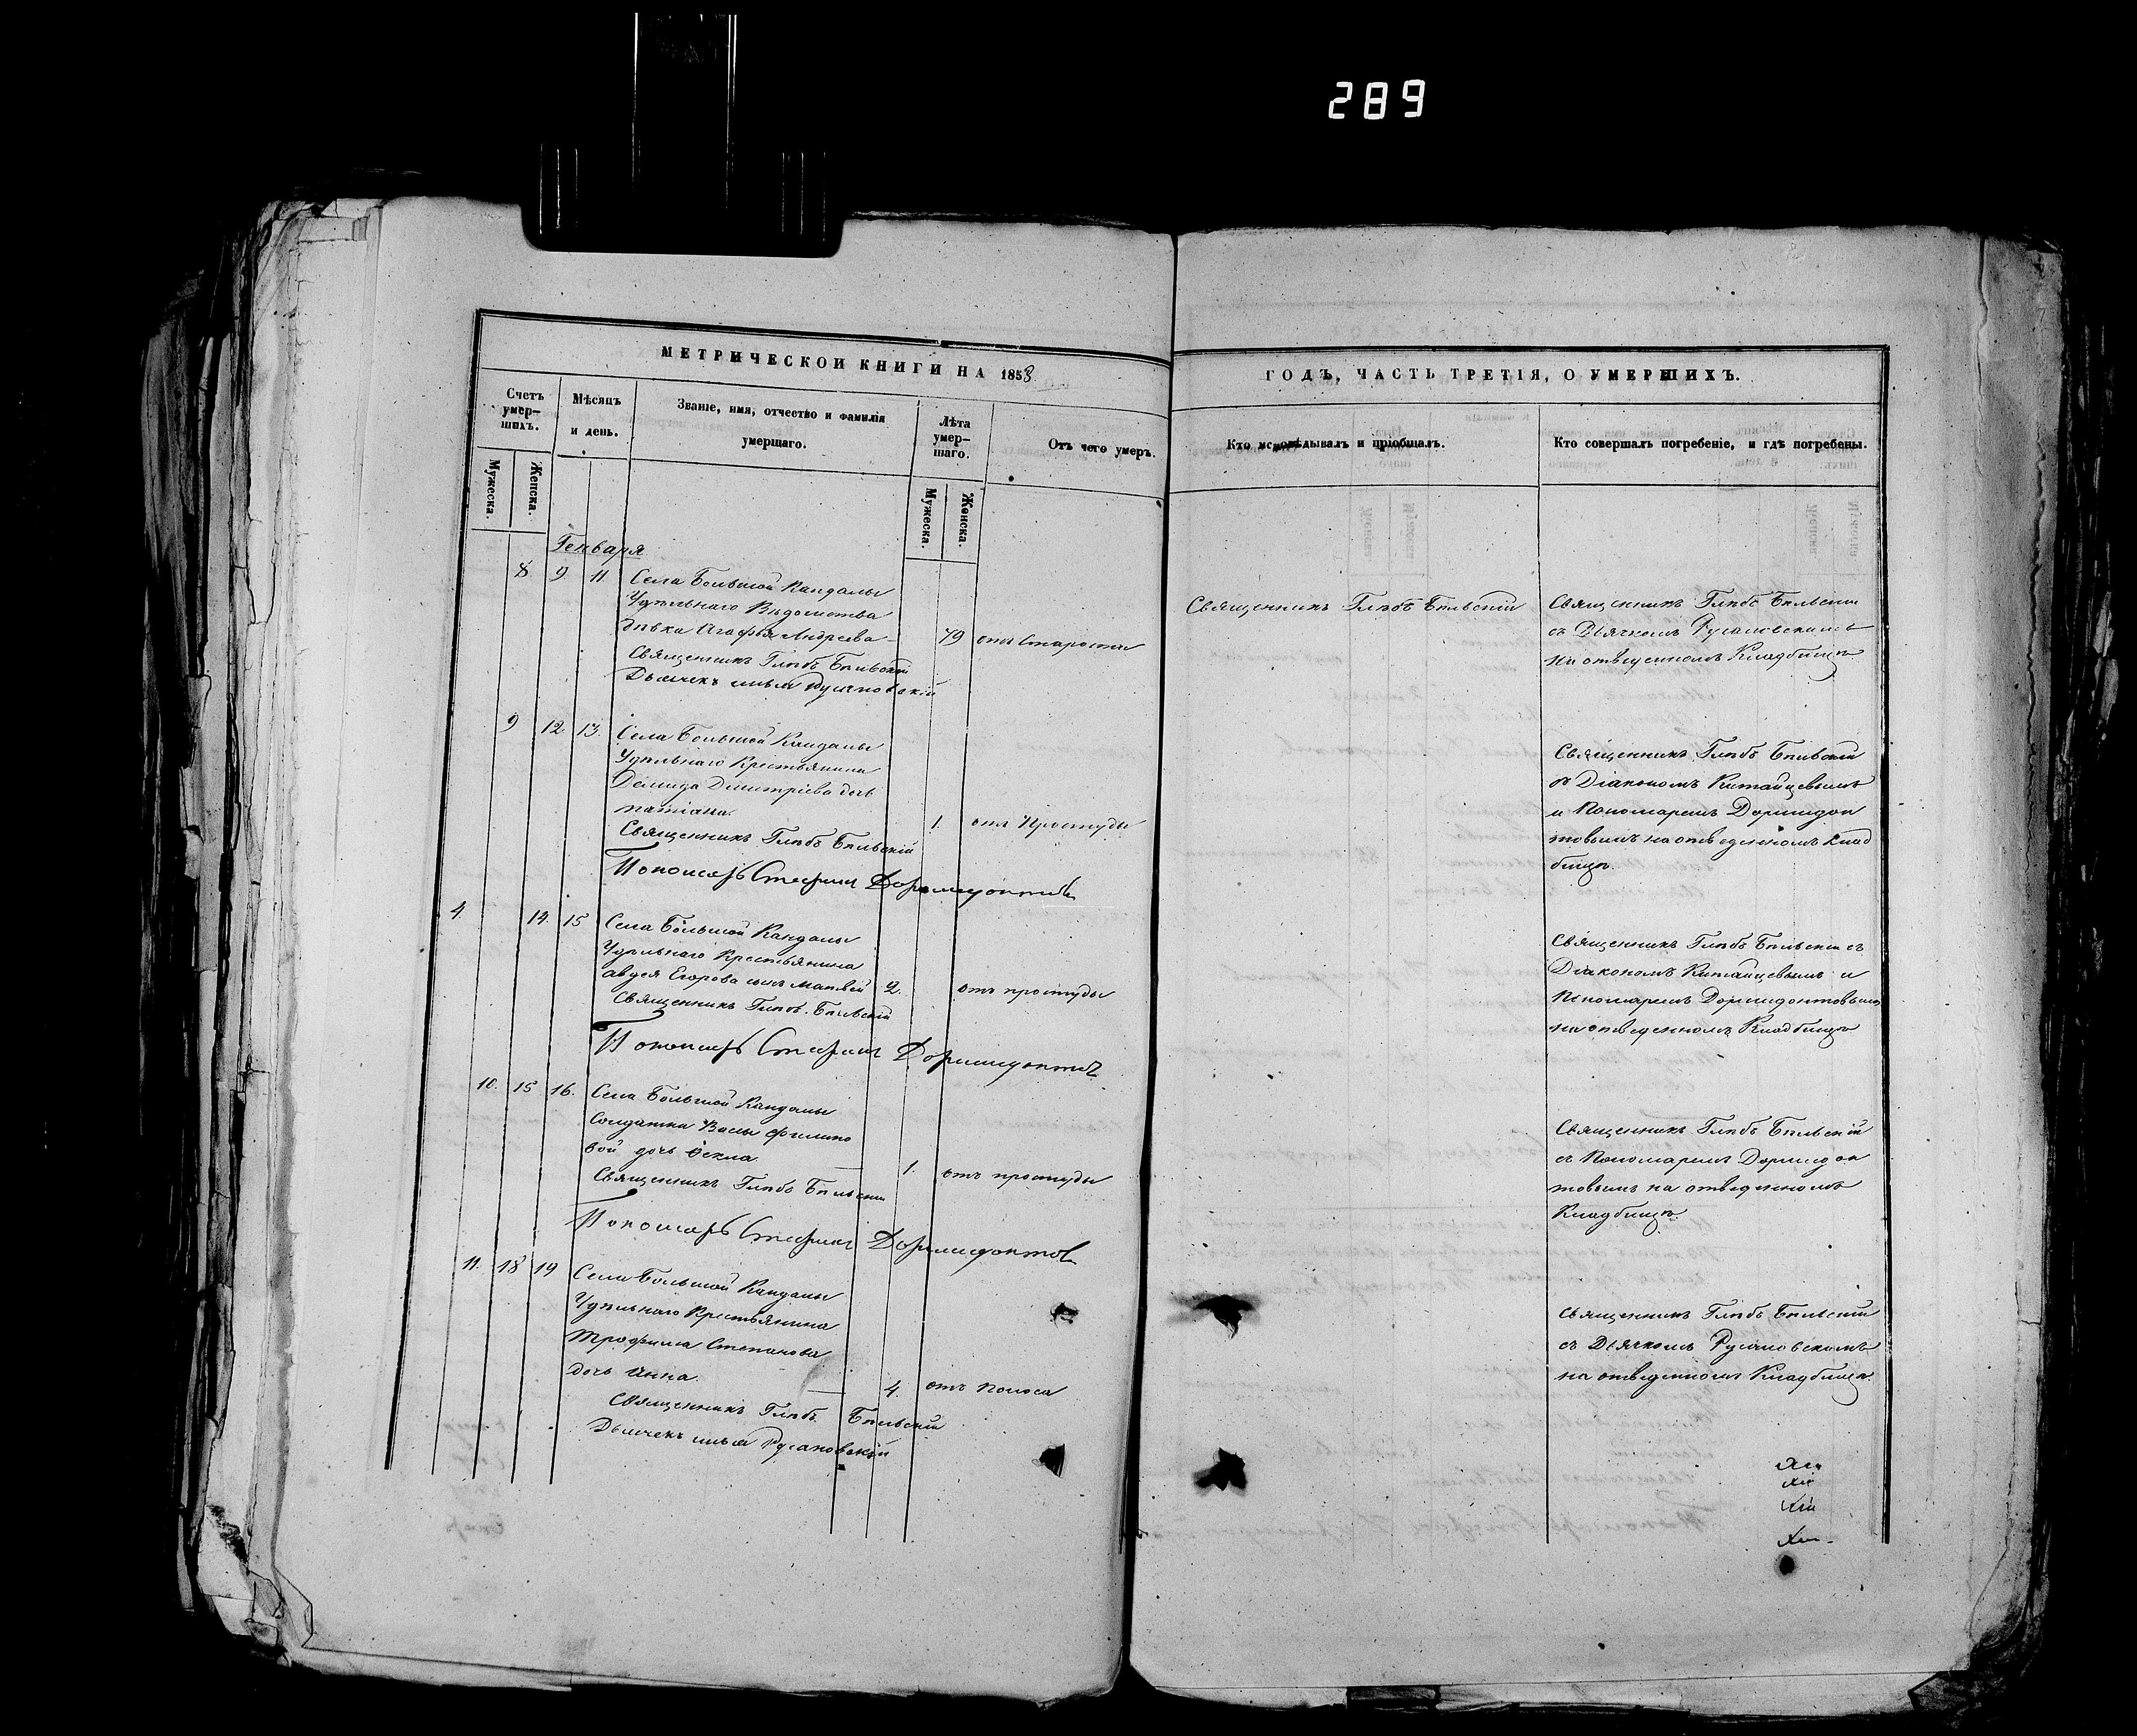 289
МЕТРИЧЕСКОЙ КНИГИ НА 1858
Счетъ умер-
шихъ.
Мѣсяцъ
и день.
Званіе, имя, отчество и фамилія
умершаго.
Лѣта
умер-
шаго.
Отъ чего умеръ.
Мужеска.
Женска.
Мужеска.
Женска.
Генваря
8 9 11 Села Большой Кандалы
Удѣльнаго Вѣдомства
дѣвка Агафья Андреева 79 отъ Старости
Священникъ Глѣбъ Бѣльскій
Дьячекъ Илья Русановскій
9 12 13. Села Большой Кандалы
Удѣльнаго Крестьянина
Демида Димитріева дочь
Татіана. 1. отъ Простуды
Священникъ Глѣбъ Бѣльскій
Пономарь Стефан Доримидонтов
4. 14. 15 Села Большой Кандалы
Удѣльнаго Крестьянина
Авдея Егорова сынъ Матвей 2. отъ простуды
Священникъ Глѣбъ Бѣльскій
Пономарь Стефан Доримидонтов
10. 15 16. Села Большой Кандалы
Солдатки Васы Филипо
вой дочь Ѳекла. 1. отъ простуды
Священникъ Глѣбъ Бѣльскій
Пономарь Стефан Доримидонтов
11. 18 19 Села Большой Кандалы
Удѣльнаго Крестьянина
Трофима Степанова
дочь Анна. 4. отъ поноса
Священникъ Глѣбъ Бѣльскій
Дьячекъ Илья Русановскій
ГОДЪ, ЧАСТЬ ТРЕТІЯ, О УМЕРШИХЪ.
Кто исповѣдывалъ и пріобщалъ.
Кто совершалъ погребеніе, и гдѣ погребены.
Священникъ Глѣбъ Бѣльскій
Священникъ Глѣбъ Бѣльскій
съ Дьячкомъ Русановскимъ
на отведенномъ Кладбищѣ.
Священникъ Глѣбъ Бѣльскій
съ Діакономъ Китайцевымъ
и Пономаремъ Доримидон
товымъ на отведенномъ Клад
бищѣ.
Священникъ Глѣбъ Бѣльскій съ
Діакономъ Китайцевымъ и
Пономаремъ Доримидонтовымъ
на отведенномъ Кладбищѣ
Священникъ Глѣбъ Бѣльскій
съ Пономаремъ Доримидон
товымъ на отведенномъ
Кладбищѣ.
Священникъ Глѣбъ Бѣльскій
съ Дьячкомъ Русановскомъ
на отведенномъ Кладбищѣ.